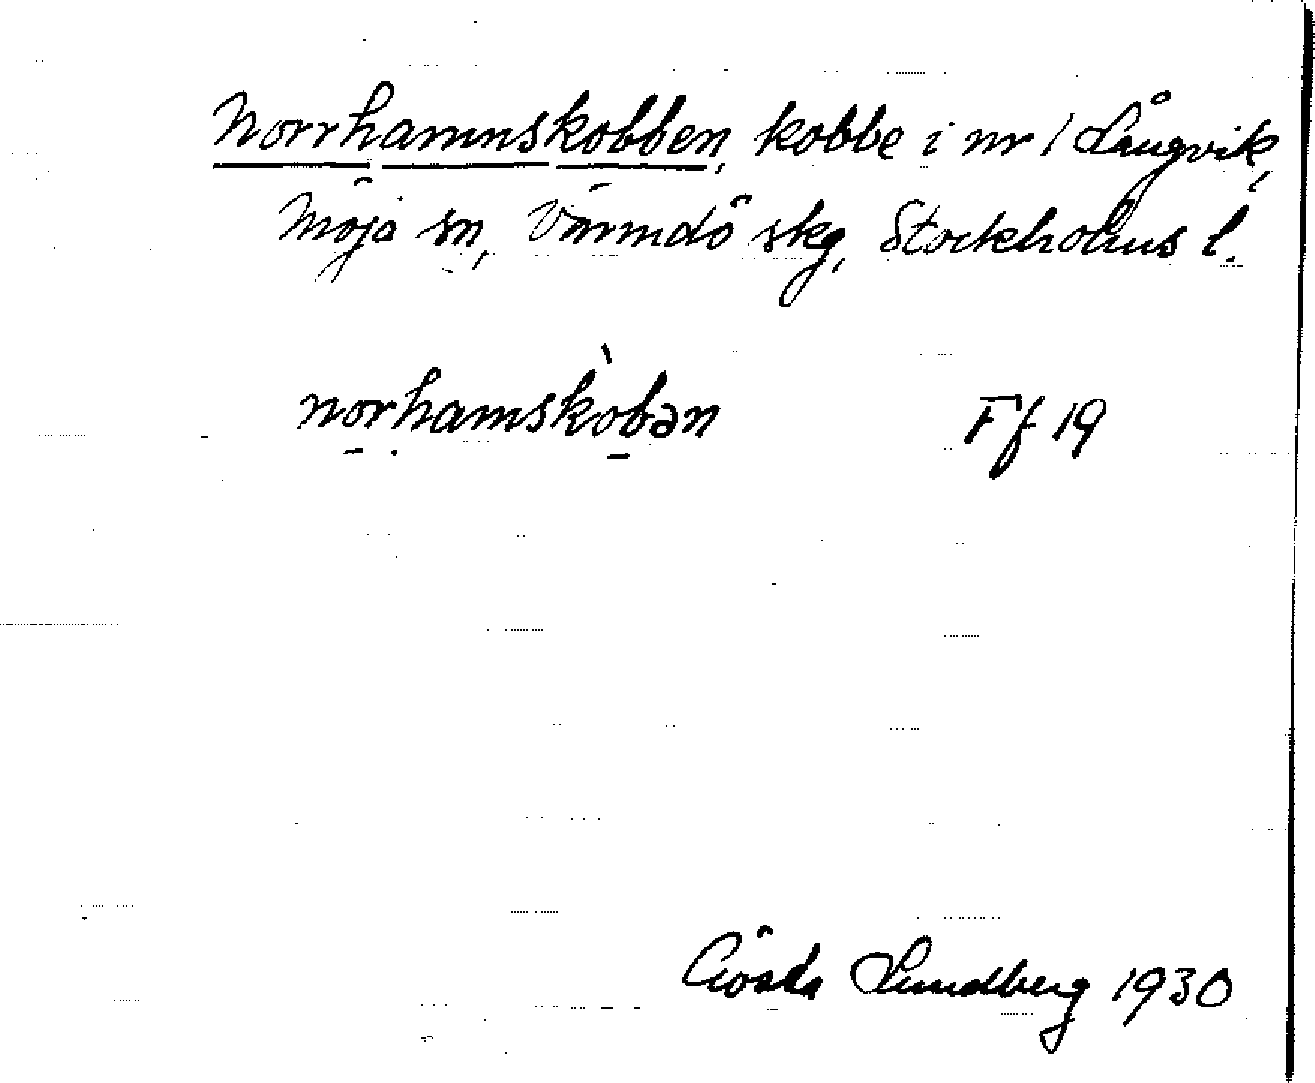 Norrhamnskobben, kobbe i nr 1 Långvik,
Möja sn, Värmdö skg, Stockholms l.
norhamskòbən Ff 19
Gösta Lundberg 1930